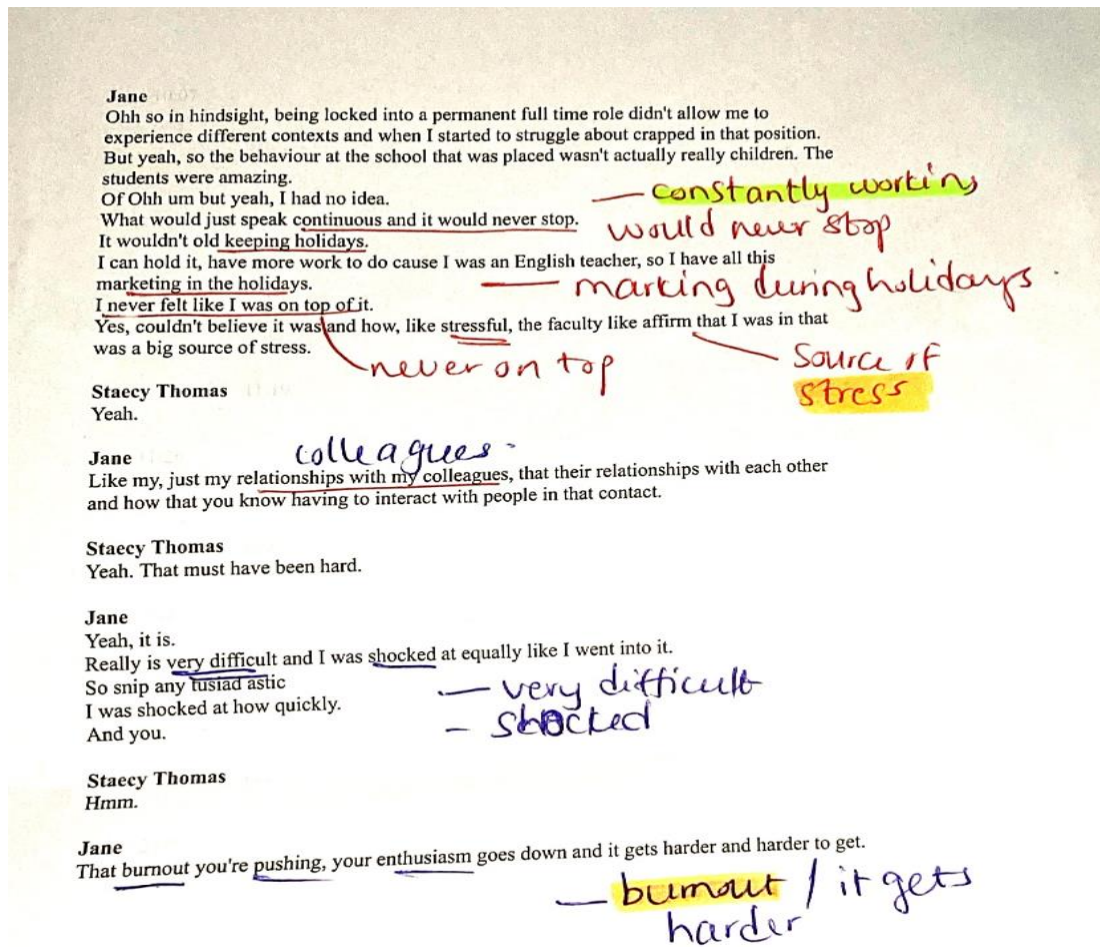 Jane
Ohh so in hindsight, being locked into a permanent full time role didn't allow me to
experience different contexts and when I started to struggle about crapped in that position.
But yeah, so the behaviour at the school that was placed wasn't actually really children. The
students were amazing.
Of Ohh um but yeah, I had no idea.
— constantly working
What would just speak continuous and it would never stop.
would never stop
It wouldn't old keeping holidays.
I can hold it, have more work to do cause I was an English teacher, so I have all this
marketing in the holidays.
— marking during holidays
I never felt like I was on top of it.
Yes, couldn't believe it was and how, like stressful, the faculty like affirm that I was in that
was a big source of stress.
never on top
Source of
stress
Staecy Thomas
Yeah.
colleagues
Jane
Like my, just my relationships with my colleagues, that their relationships with each other
and how that you know having to interact with people in that contact.
Staecy Thomas
Yeah. That must have been hard.
Jane
Yeah, it is.
Really is very difficult and I was shocked at equally like I went into it.
So snip any tusiad astic
— very difficult
I was shocked at how quickly.
– shocked
And you.
Staecy Thomas
Hmm.
Jane
That burnout you're pushing, your enthusiasm goes down and it gets harder and harder to get.
— burnout / it gets
harder